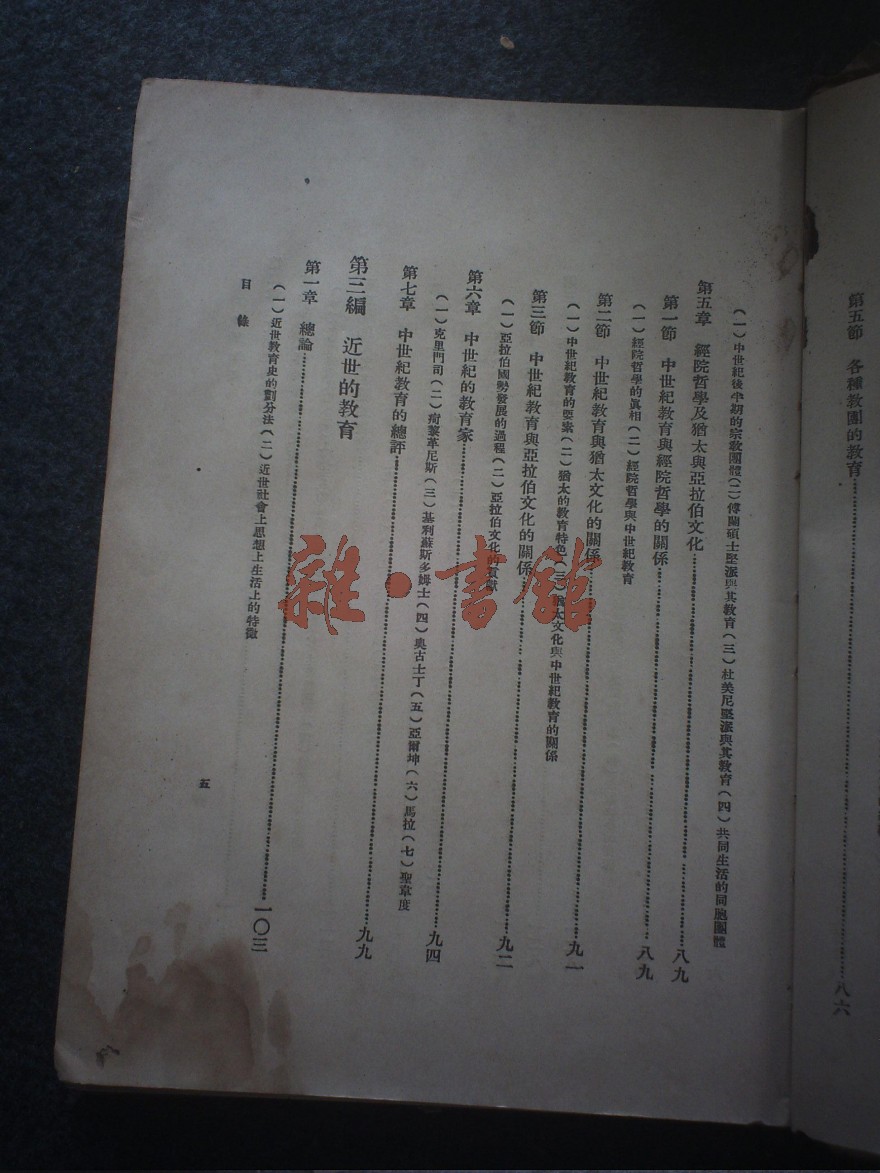 第五節　各種教團的教育……八六
（一）中世紀後半期的宗敎團體（二）傅蘭碩士堅派與其敎育（三）杜美尼堅派與其敎育（四）共同生活的同胞團體
第五章　經院哲學及猶太與亞拉伯文化……八九
第一節　中世紀敎育與經院哲學的關係……八九
（一）經院哲學的眞相（二）經院哲學與中世紀敎育
第二節　中世紀敎育與猶太文化的關係……九一
（一）中世紀敎育的要素（二）猶太的敎育特色（三）猶太文化與中世紀敎育的關係
第三節　中世紀敎育與亞拉伯文化的關係……九二
（一）亞拉伯國勢發展的過程（二）亞拉伯文化的貢獻
第六章　中世紀的敎育家……九四
（一）克里門司（二）阿黎革尼斯（三）基利蘇斯多姆士（四）奧古士丁（五）亞爾坤（六）馬拉（七）聖韋度
第七章　中世紀敎育的總評……九九
第三編　近世的敎育
第一章　總論……一〇三
（一）近世敎育史的劃分法（二）近世社會上思想上生活上的特徵
目錄
五
雜·書館